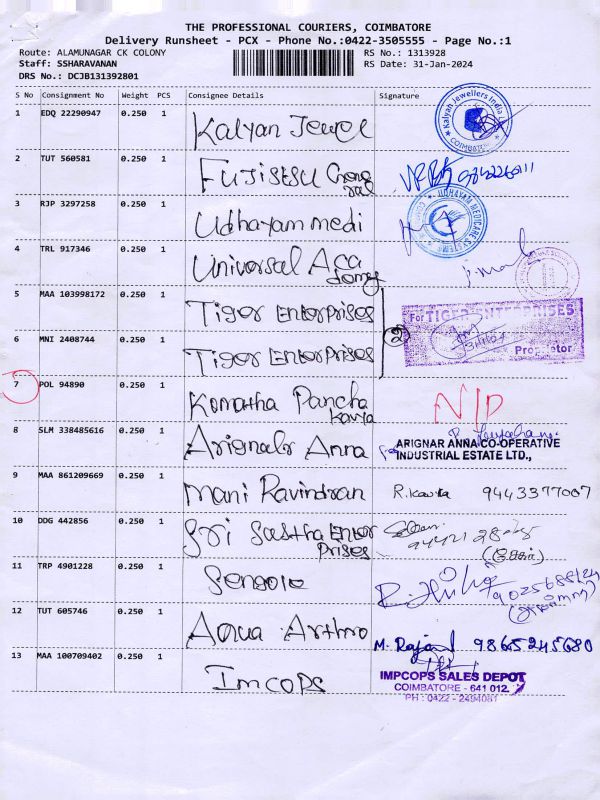 THE PROFESSIONAL COURIERS, COIMBATORE
Delivery Runsheet - PCX - Phone No.:0422-3505555 - Page No.:1
Route: ALAMUNAGAR CK COLONY RS No.: 1313928
Staff: SSHARAVANAN RS Date: 31-Jan-2024
DRS No.: DCJB131392801
S No Consignment No Weight PCS Consignee Details Signature
1 EDQ 22290947 0.250 1 Kalyan Jewel
Kalyan Jewellers India
COIMBATORE
2 TUT 560581 0.250 1 FUJISESU
3 RJP 3297258 0.250 1 Udhayam medi
UDHAYAM MEDICARE SYSTEMS
4 TRL 917346 0.250 1 Universal Aca
demy
5 MAA 103998172 0.250 1 Tiger Enterprises
For TIGER ENTERPRISES
2
Proprietor
6 MNI 2408744 0.250 1 Tiger Enterprises
7 POL 94890 0.250 1 Komatha Pancha
Kavya
N/D
8 SLM 338485616 0.250 1 Arignalr Anna
ARIGNAR ANNA CO-OPERATIVE
INDUSTRIAL ESTATE LTD.,
9 MAA 861209669 0.250 1 Mani Ravindran R. Kavita 9443377007
10 DDG 442856 0.250 1 Sri Sastha Enter
Prises
11 TRP 4901228 0.250 1 9025688124
12 TUT 605746 0.250 1 Aqua Arthro M. Rajan 9865245680
13 MAA 100709402 0.250 1 Imcops
IMPCOPS SALES DEPOT
COIMBATORE - 641 012.
PH : 0422 - 2494081